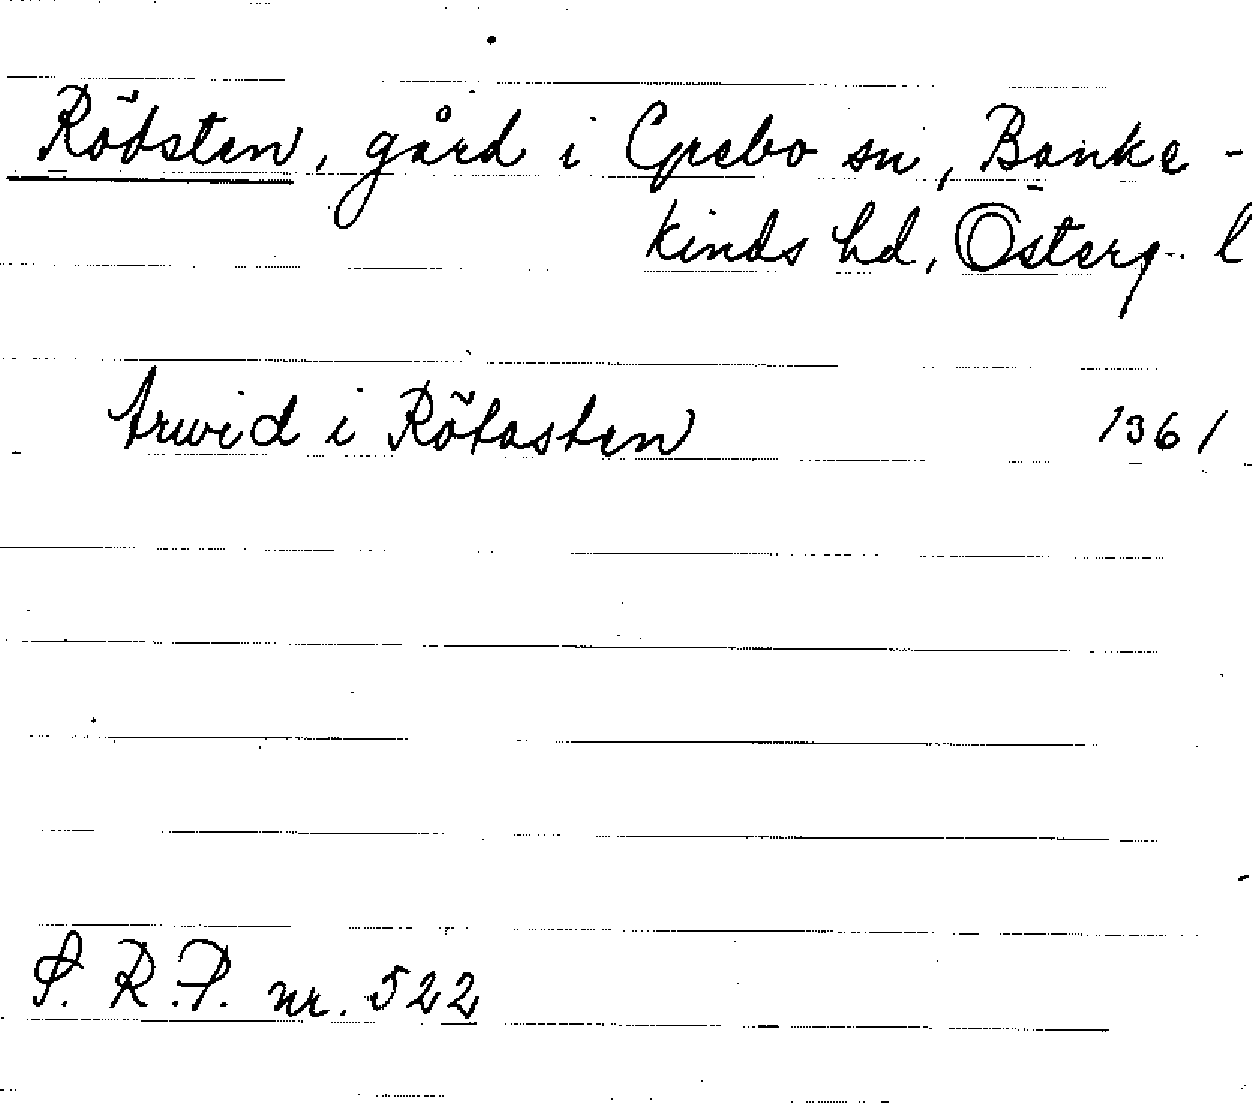 Rödsten, gård i Grebo sn, Banke-
kinds hd, Österg. l
Arwid i Rötasten 1361
S. R. P. nr. 522